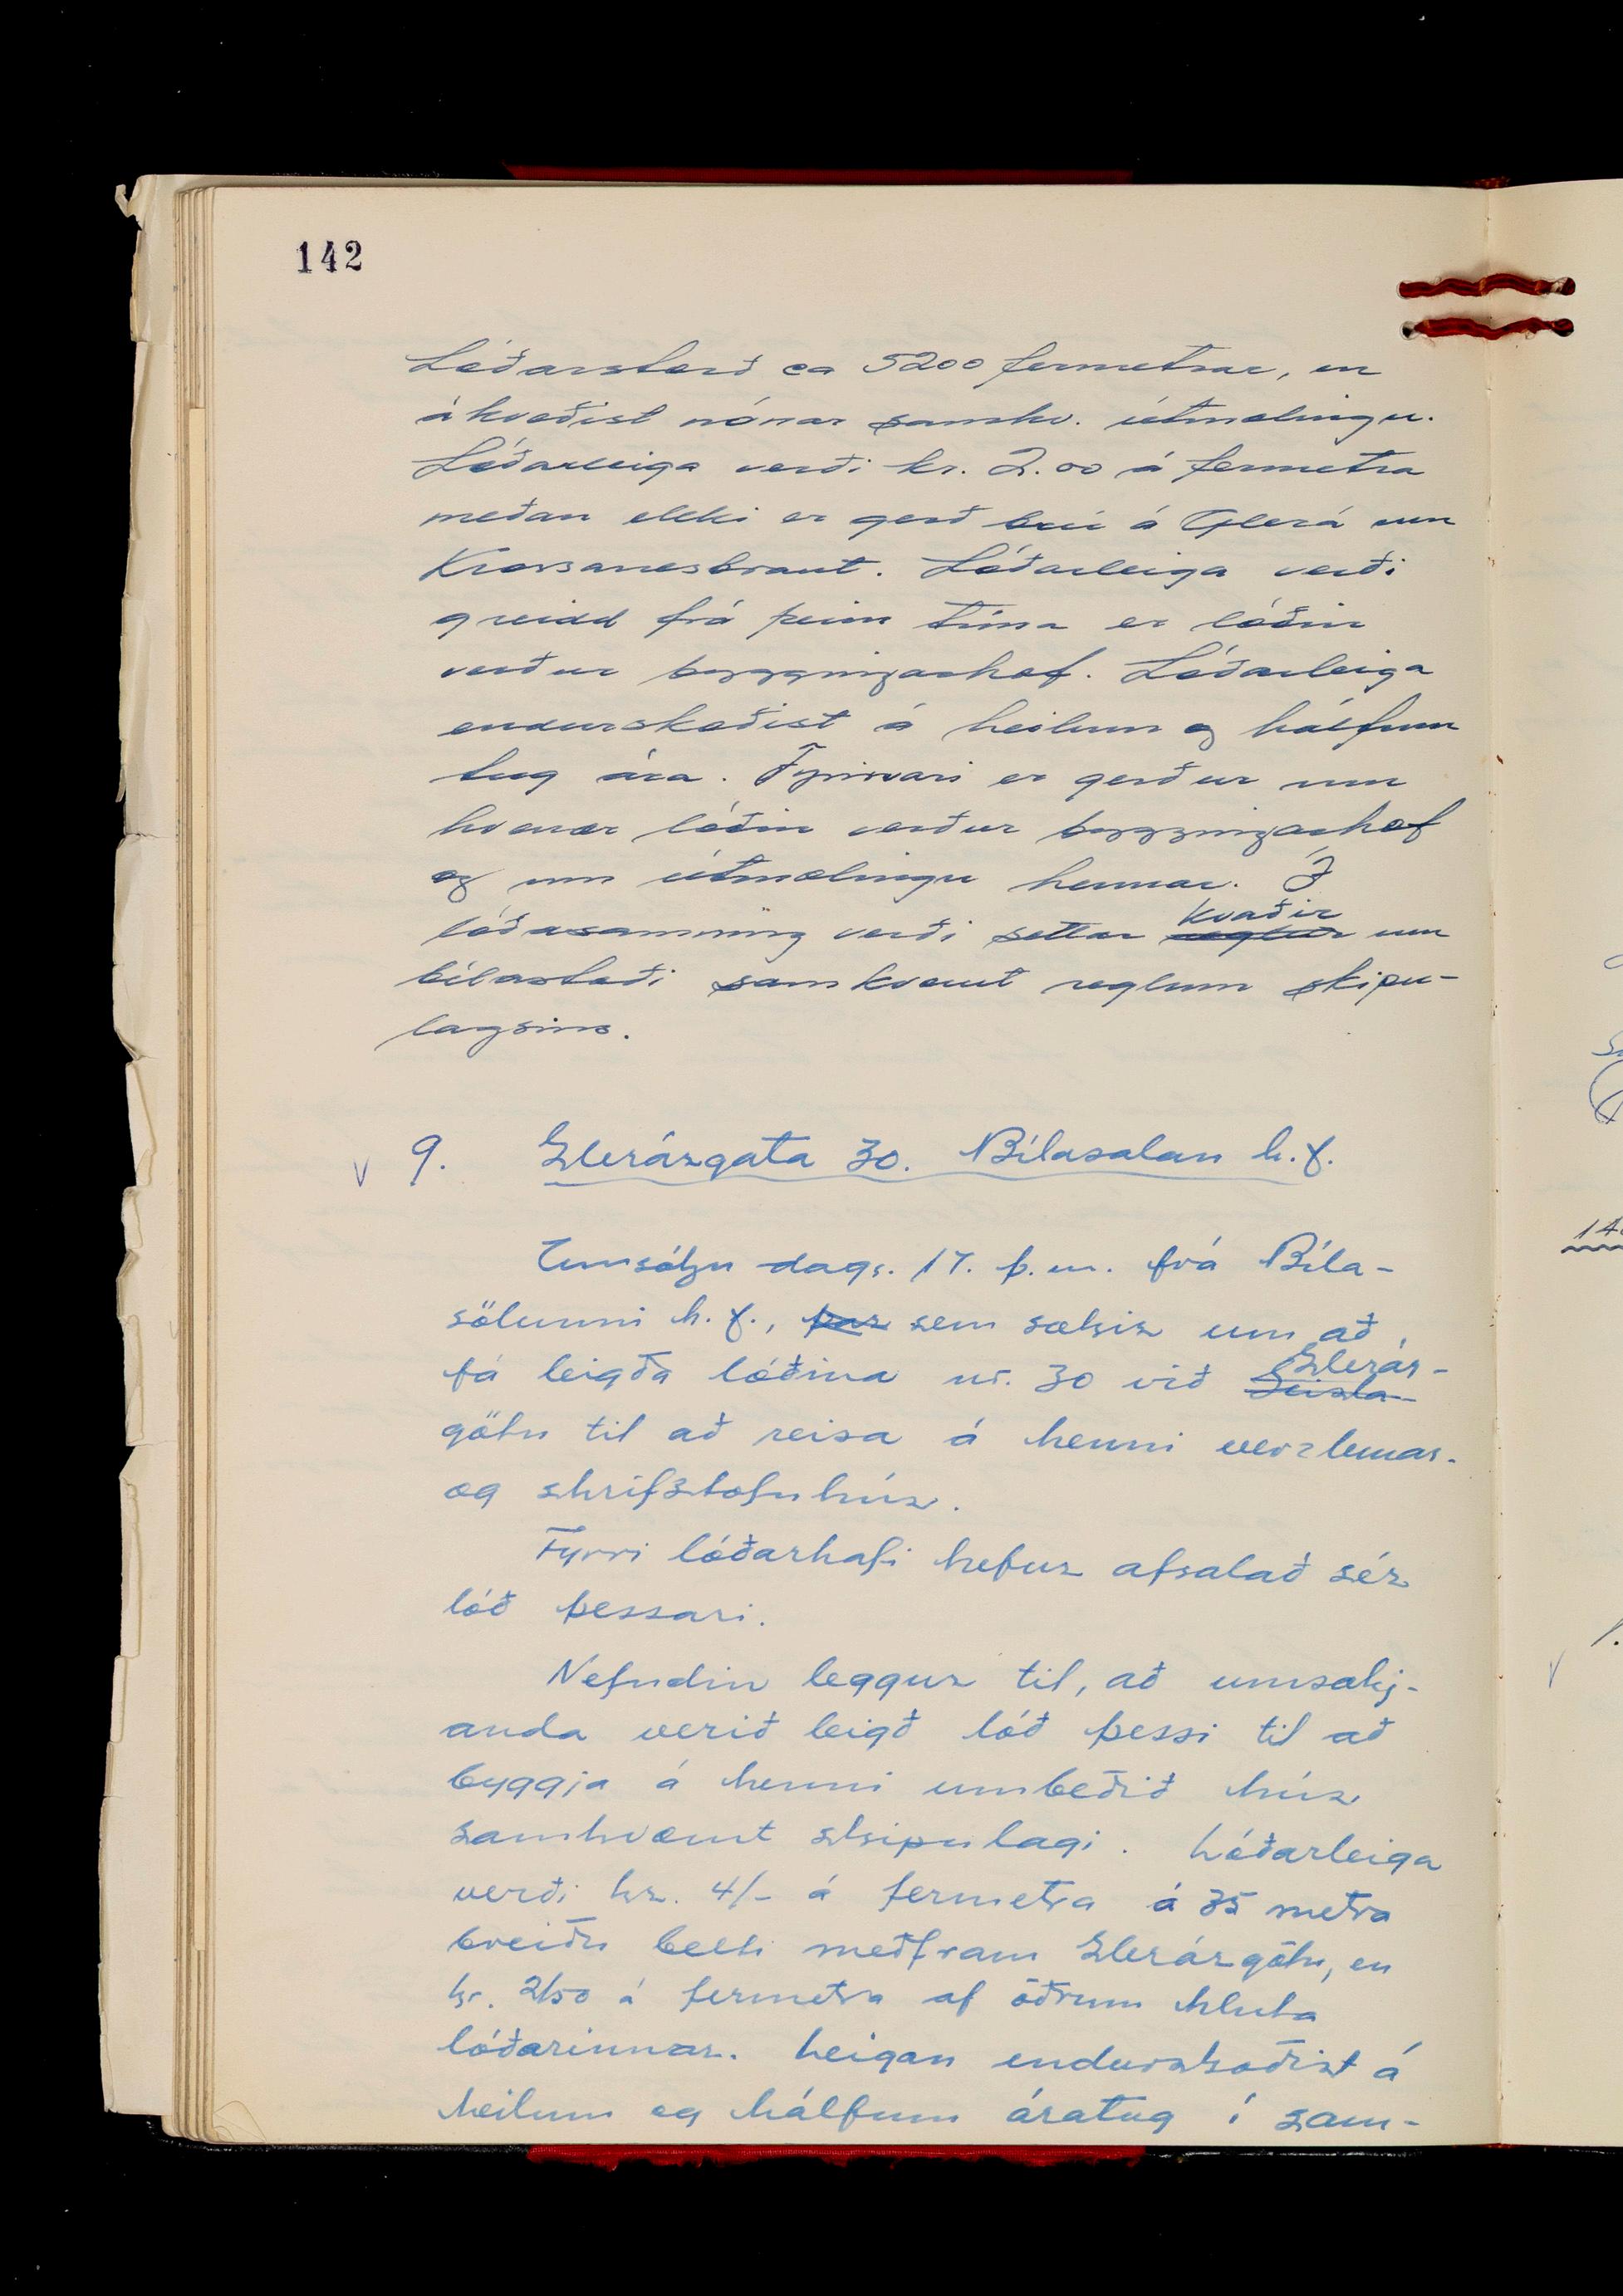 142
Lóðarstærð ca 5200 fermetrar, en
ákveðist nánar samkv. útmælingu.
Lóðarleiga verði kr. 2.00 á fermetra
meðan ekki er gerð brú á Glerá um
Krossanesbraut. Lóðarleiga verði
greidd frá þeim tíma er lóðin
verður byggingarhæf. Lóðarleiga
endurskoðist á heilum og hálfum
tug ára. Fyrirvari er gerður um
hvenær lóðin verður byggingarhæf
og um útmælingu hennar. Í
kvaðir
lóðasamning verði settar reglur um
bílastæði samkvæmt reglum skipu-
lagsins.
v 9. Glerárgata 30. Bílasalan h.f.
Umsókn dags. 17. þ.m. frá Bíla-
sölunni h.f., þar sem sækir um að
Glerár-
fá leigða lóðina nr. 30 við
götu til að reisa á henni verzlunar-
og skrifstofuhús.
Fyrri lóðarhafi hefur afsalað sér
lóð þessari.
Nefndin leggur til, að umsækj-
anda verið leigð lóð þessi til að
byggja á henni umbeðið hús
samkvæmt skipulagi. Lóðarleiga
verði kr. 4/- á fermetra á 35 metra
breiðu belti meðfram Glerárgötu, en
kr. 2/50 á fermetra af öðrum hluta
lóðarinnar. Leigan endurskoðist á
heilum og hálfum áratug í sam-